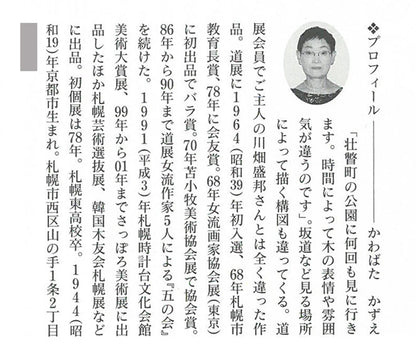 ❖プロフィール―――かわばた　かずえ
「壮瞥町の公園に何回も見に行き
ます。時間によって木の表情や雰囲
気が違うのです」。坂道など見る場所
によって描く構図も違ってくる。道
展会員でご主人の川畑盛邦さんとは全く違った作
品。道展に1964（昭和39）年初入選、68年札幌市
教育長賞、78年に会友賞。68年女流画家協会展（東京）
に初出品でバラ賞。70年苫小牧美術協会展で協会賞。
86年から90年まで道展女流作家5人による『五の会』
を続けた。1991（平成3）年札幌時計台文化会館
美術大賞展、99年から01年までさっぽろ美術展に出
品したほか札幌芸術選抜展、韓国木友会札幌展など
に出品。初個展は78年。札幌東高校卒。1944（昭
和19）年京都市生まれ。札幌市西区山の手1条2丁目